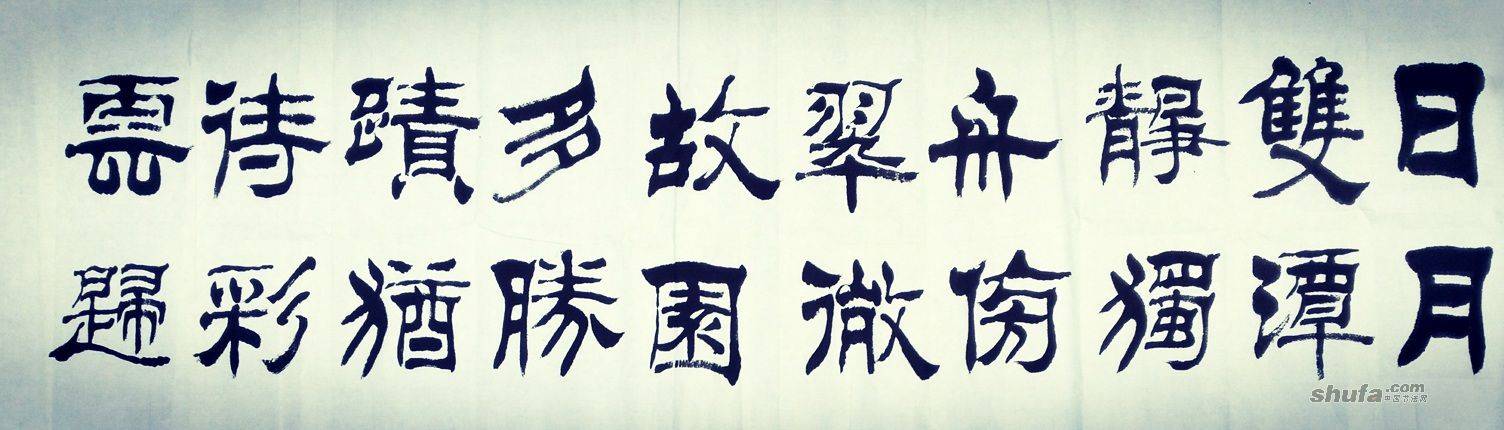 日月
雙潭
靜獨
舟傍
翠微
故園
多勝
蹟猶
待彩
雲歸
shufa.com
中国书法网